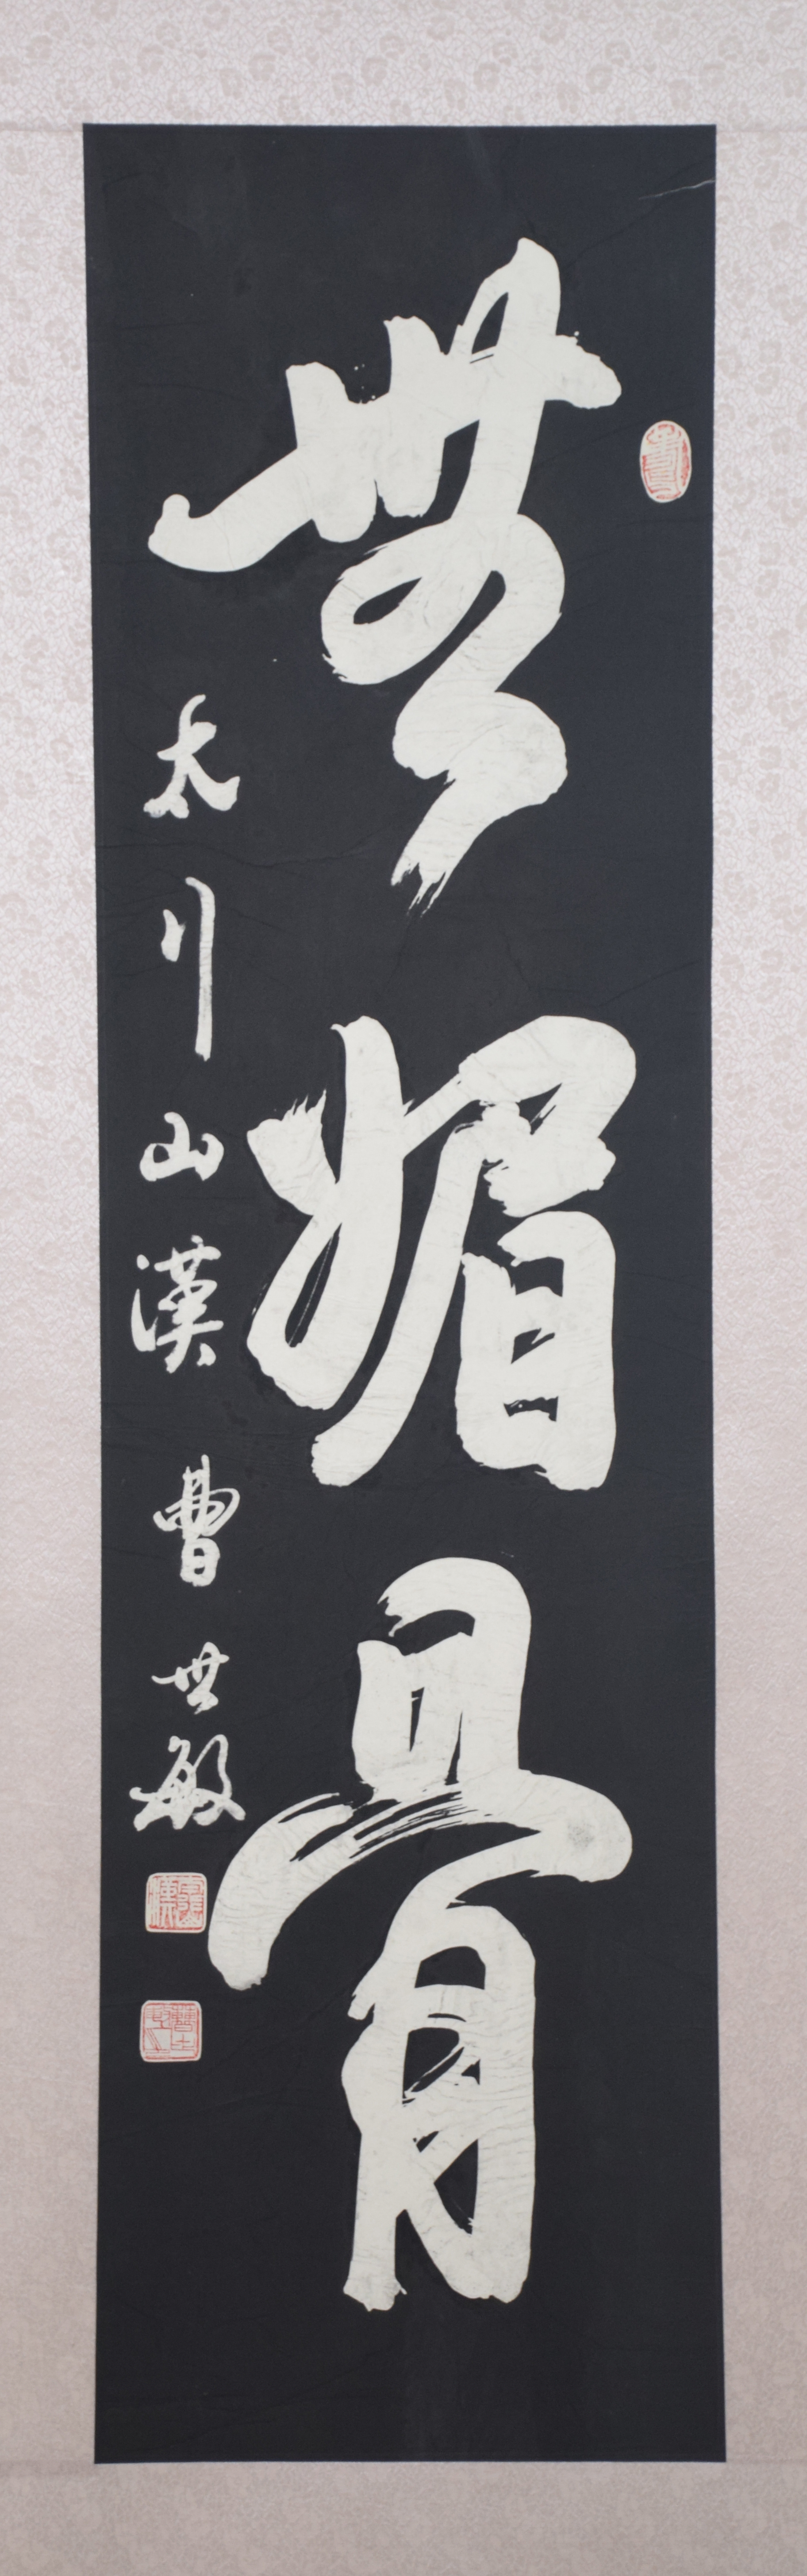 無媚骨
太行山漢 曹世敏